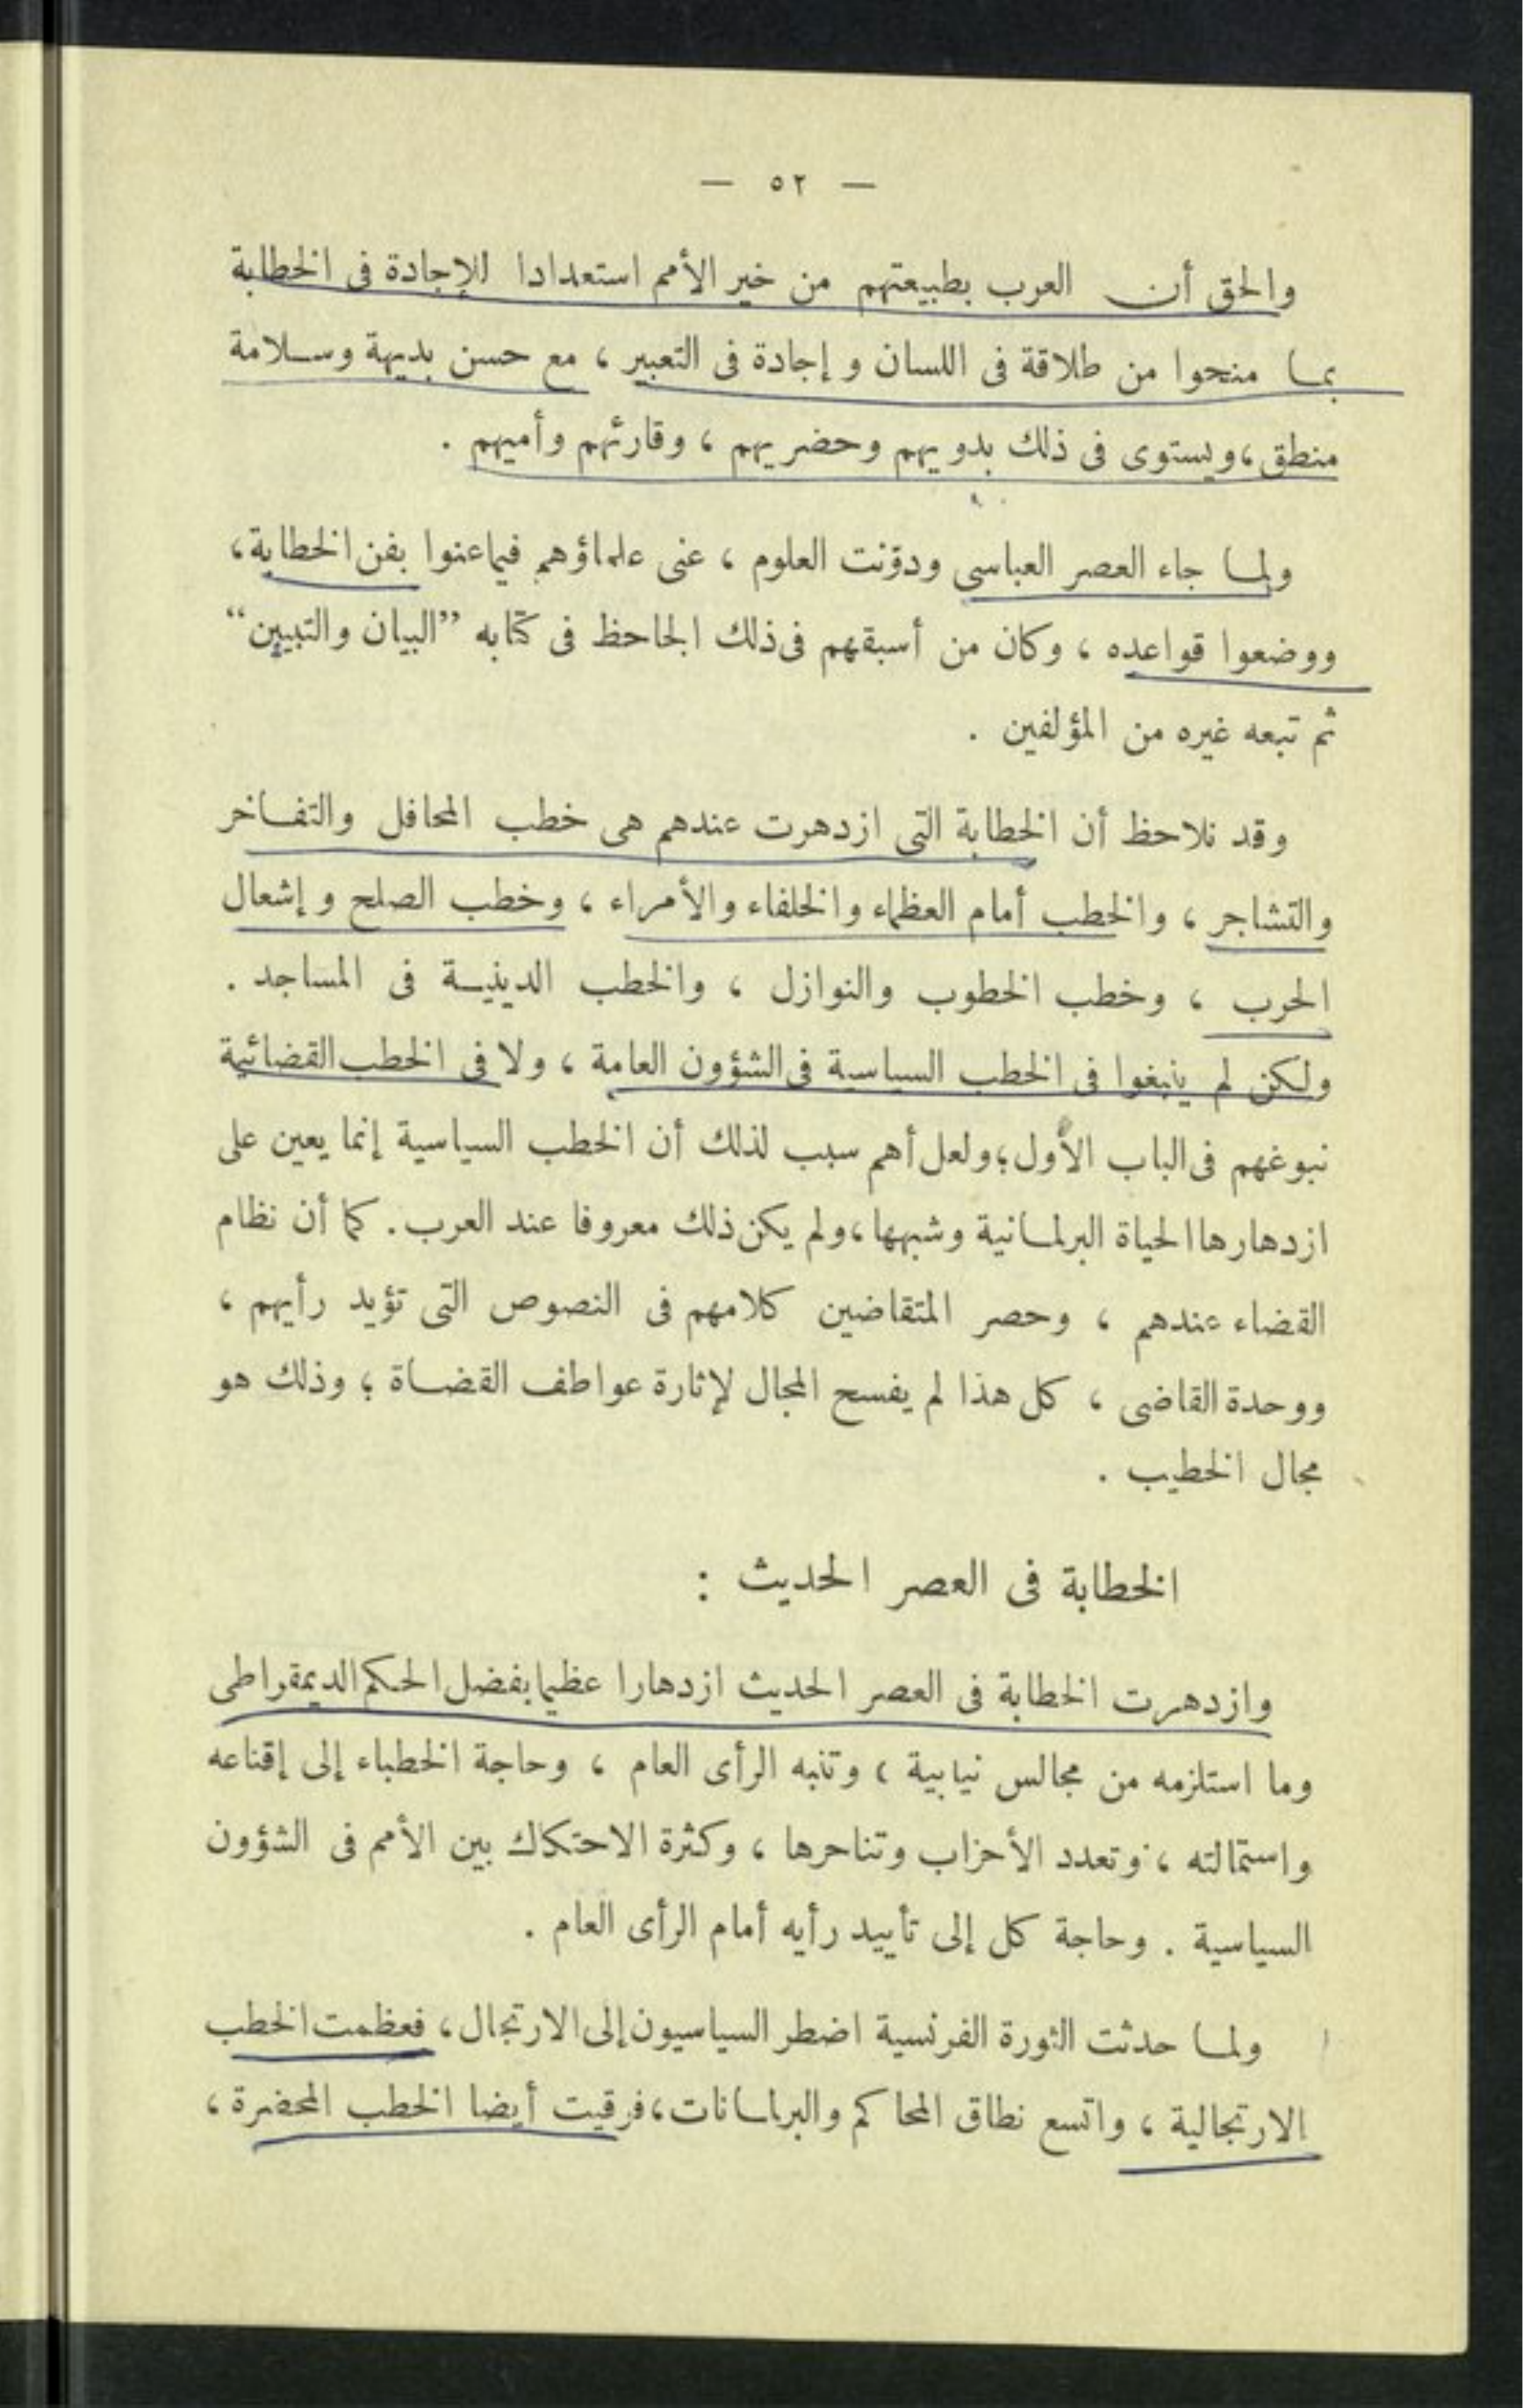 — ٥٢ —
والحق أن العرب بطبيعتهم من خير الأمم استعدادا للإجادة فى الخطابة
بما منحوا من طلاقة فى اللسان و إجادة فى التعبير ، مع حسن بديهة وسلامة
منطق ، ويستوى فى ذلك بدويهم وحضريهم ، وقارئهم وأميهم .
ولما جاء العصر العباسى ودوّنت العلوم ، عنى علماؤهم فيما عنوا بفن الخطابة ،
ووضعوا قواعده ، وكان من أسبقهم فى ذلك الجاحظ فى كتابه ”البيان والتبيين“
ثم تبعه غيره من المؤلفين .
وقد نلاحظ أن الخطابة التى ازدهرت عندهم هى خطب المحافل والتفاخر
والتشاجر ، والخطب أمام العظماء والخلفاء والأمراء ، وخطب الصلح و إشعال
الحرب ، وخطب الخطوب والنوازل ، والخطب الدينية فى المساجد .
ولكن لم ينبغوا فى الخطب السياسية فى الشؤون العامة ، ولا فى الخطب القضائية
نبوغهم فى الباب الأول ؛ ولعل أهم سبب لذلك أن الخطب السياسية إنما يعين على
ازدهارها الحياة البرلمانية وشبهها ، ولم يكن ذلك معروفا عند العرب . كما أن نظام
القضاء عندهم ، وحصر المتقاضين كلامهم فى النصوص التى تؤيد رأيهم ،
ووحدة القاضى ، كل هذا لم يفسح المجال لإثارة عواطف القضاة ؛ وذلك هو
مجال الخطيب .
الخطابة فى العصر الحديث :
وازدهرت الخطابة فى العصر الحديث ازدهارا عظيما بفضل الحكم الديمقراطى
وما استلزمه من مجالس نيابية ، وتنبه الرأى العام ، وحاجة الخطباء إلى إقناعه
واستمالته ، وتعدد الأحزاب وتناحرها ، وكثرة الاحتكاك بين الأمم فى الشؤون
السياسية . وحاجة كل إلى تأييد رأيه أمام الرأى العام .
ولما حدثت الثورة الفرنسية اضطر السياسيون إلى الارتجال ، فعظمت الخطب
الارتجالية ، واتسع نطاق المحاكم والبرلمانات ، فرقيت أيضا الخطب المحضرة ،